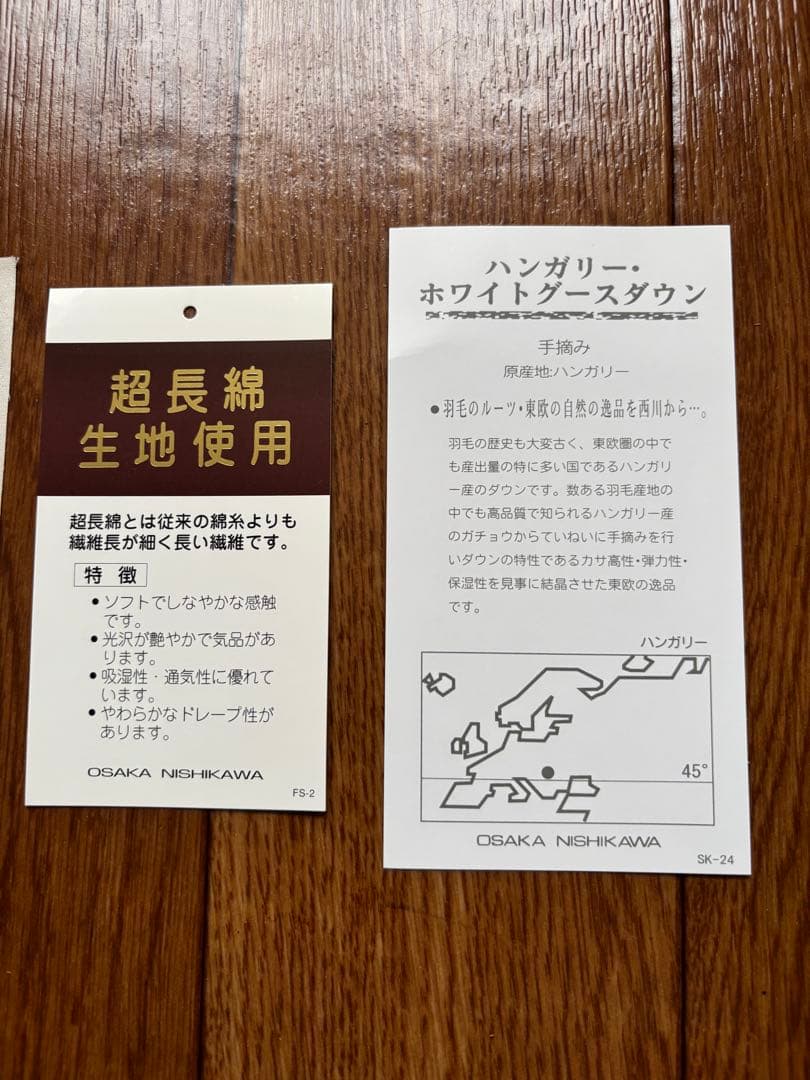 超長綿
生地使用
超長綿とは従来の綿糸よりも
繊維長が細く長い繊維です。
特徴
●ソフトでしなやかな感触
です。
●光沢が艶やかで気品があ
ります。
●吸湿性・通気性に優れて
います。
●やわらかなドレープ性が
あります。
OSAKA NISHIKAWA
FS-2
ハンガリー・
ホワイトグースダウン
手摘み
原産地:ハンガリー
●羽毛のルーツ・東欧の自然の逸品を西川から…。
羽毛の歴史も大変古く、東欧圏の中で
も産出量の特に多い国であるハンガリ
ー産のダウンです。数ある羽毛産地の
中でも高品質で知られるハンガリー産
のガチョウからていねいに手摘みを行
いダウンの特性であるカサ高性・弾力性・
保湿性を見事に結晶させた東欧の逸品
です。
ハンガリー
45°
OSAKA NISHIKAWA
SK-24